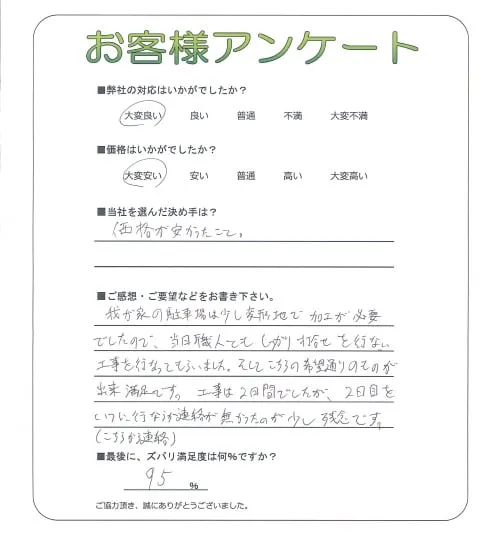 お客様アンケート
■弊社の対応はいかがでしたか？
大変良い 良い 普通 不満 大変不満
■価格はいかがでしたか？
大変安い 安い 普通 高い 大変高い
■当社を選んだ決め手は？
価格が安かったこと。
■ご感想・ご要望などをお書き下さい。
我が家の駐車場は少し変形地で加工が必要
でしたので、当日職人とも しっかり 打合せ を行ない
工事を行なってもらいました。そしてこちらの希望通りのものが
出来 満足です。工事は2日間でしたが、2日目を
いつに行なうか連絡が無かったのが少し残念です。
(こちらから連絡)
■最後に、ズバリ満足度は何%ですか？
95 %
ご協力頂き、誠にありがとうございました。